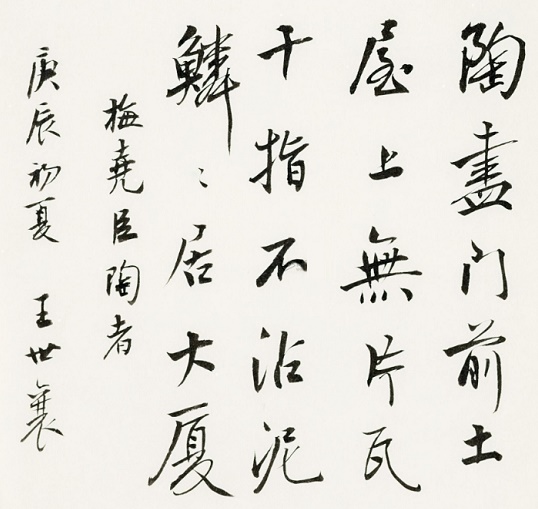 陶盡門前土
屋上無片瓦
十指不沾泥
鱗〻居大厦
梅堯臣陶者
庚辰初夏 王世襄